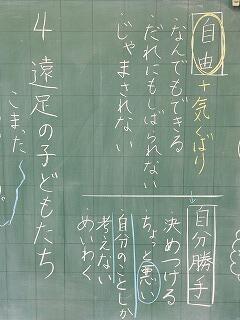 自由+気くばり
・なんでもできる
・だれにもしばられない
・じゃまされない
自分勝手
・決めつける
ちょっと悪い
・自分のことしか
考えない
・めいわく
4 遠足の子どもたち
こまった